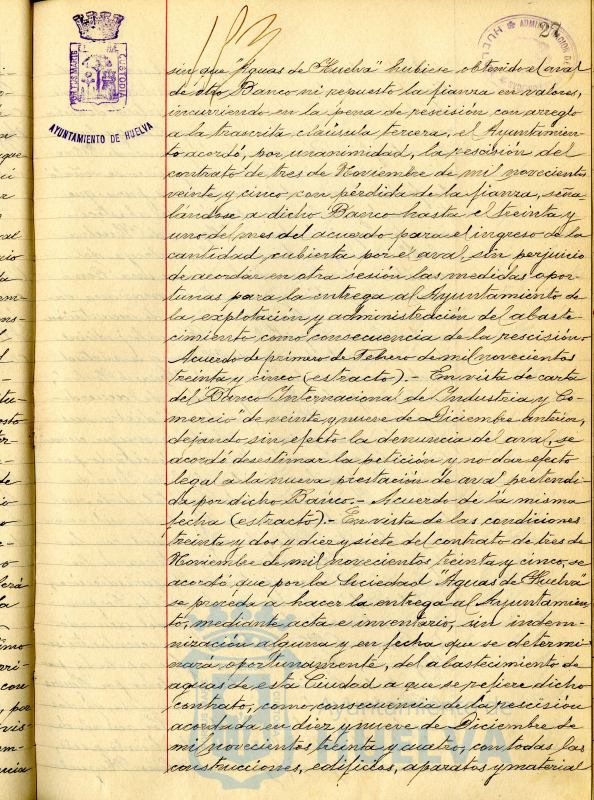 183
27
AYUNTAMIENTO DE HUELVA
sin que "Aguas de Huelva" hubiese obtenido el aval
de otro Banco ni repuesto la fianza en valores,
incurriendo en la pena de rescisión con arreglo
a la trascrita cláusula tercera, el Ayuntamien-
to acordó, por unanimidad, la rescisión del
contrato de tres de Noviembre de mil novecientos
veinte y cinco con pérdida de la fianza, seña-
lándose a dicho Banco hasta el treinta y
uno del mes del acuerdo para el ingreso de la
cantidad cubierta por el aval, sin perjuicio
de acordar en otra sesión las medidas opor-
tunas para la entrega al Ayuntamiento de
la explotación y administración del abaste-
cimiento como consecuencia de la rescisión.-
Acuerdo de primero de Febrero de mil novecientos
treinta y cinco (estracto).- En vista de carta
del "Banco Internacional de Industria y Co-
mercio" de veinte y nueve de Diciembre anterior,
dejando sin efecto la denuncia del aval, se
acordó desestimar la petición y no dar efecto
legal a la nueva prestación de aval pretendi-
da por dicho Banco.- Acuerdo de la misma
fecha (estracto).- En vista de las condiciones
treinta y dos y diez y siete del contrato de tres de
Noviembre de mil novecientos treinta y cinco, se
acordó que por la Sociedad "Aguas de Huelva"
se proceda a hacer la entrega al Ayuntamien-
to, mediante acta e inventario, sin indem-
nización alguna y en fecha que se determi-
nará oportunamente, del abastecimiento de
aguas de esta Ciudad a que se refiere dicho
contrato, como consecuencia de la rescisión
acordada en diez y nueve de Diciembre de
mil novecientos treinta y cuatro, con todas las
construcciones, edificios, aparatos y material
Ayuntamiento de
HUELVA